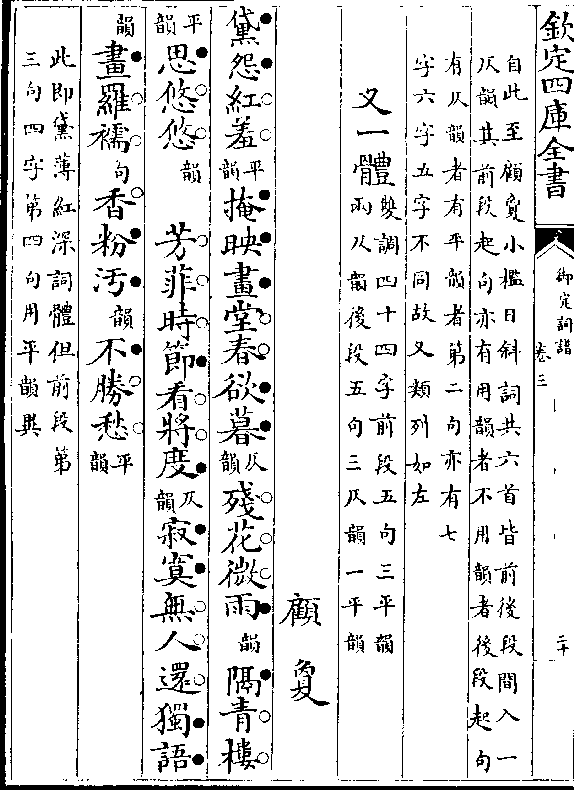 欽定四庫全書
御定詞譜
卷三
二十
自此至顧夐小檻日斜詞共六首皆前後段間入一
仄韻其前段起句亦有用韻者不用韻者後段起句
有仄韻者有平韻者第二句亦有七
字六字五字不同故又類列如左
又一體雙調四十四字前段五句三平韻
兩仄韻後段五句三仄韻一平韻
顧夐
黛怨紅羞平韻掩映畫堂春欲暮仄韻殘花微雨韻隔青樓
平韻思悠悠韻 芳菲時節看將度仄韻寂寞無人還獨語
韻畫羅襦句香粉汚韻不勝愁平韻
此即黛薄紅深詞體但前段第
三句四字第四句用平韻異